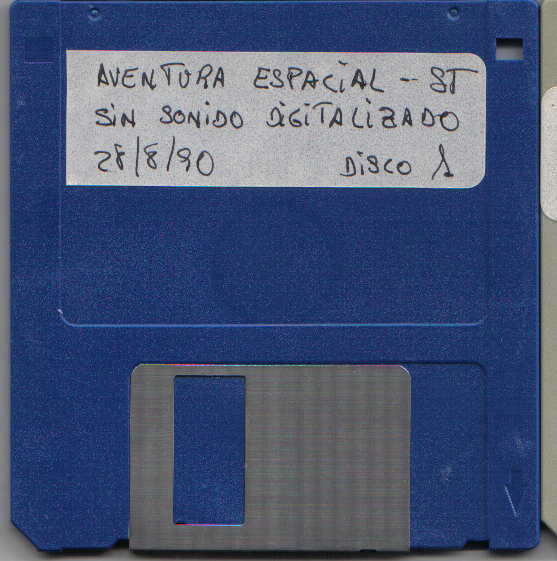 AVENTURA ESPACIAL -- ST
SIN SONIDO DIGITALIZADO
28/8/90 DISCO 1